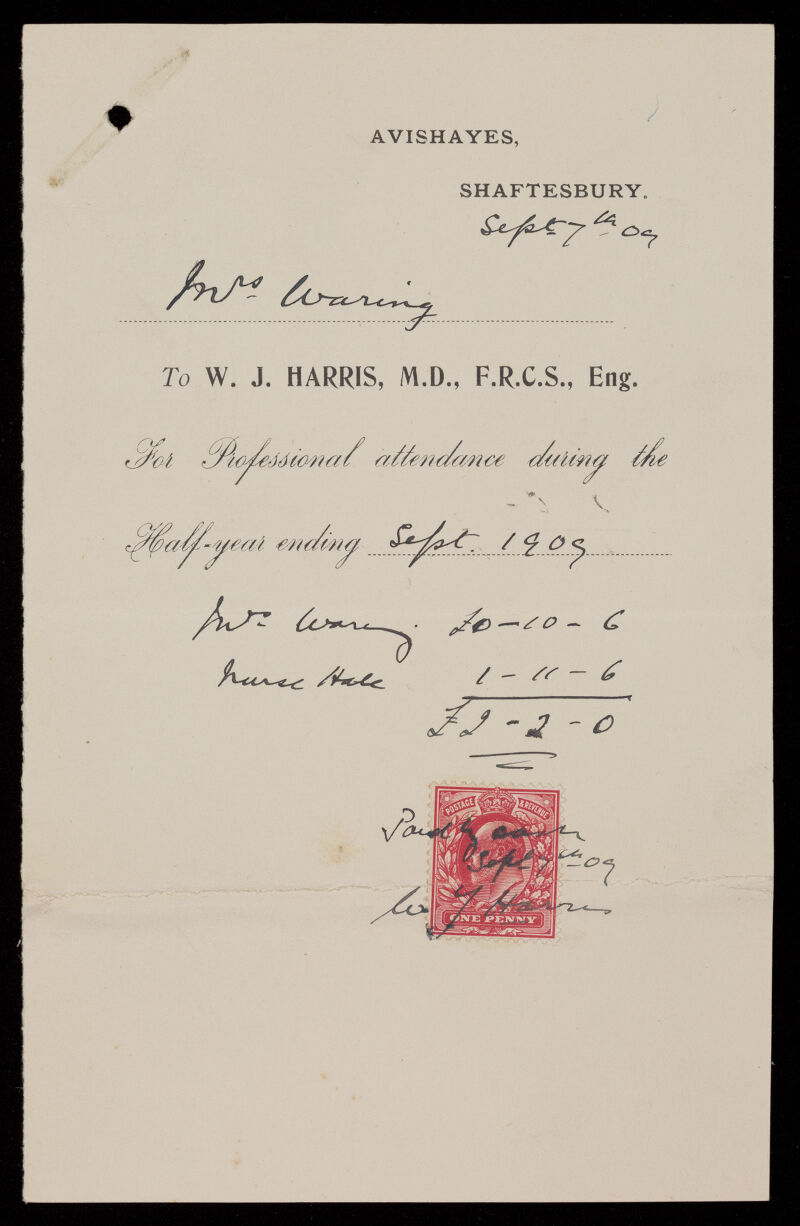 AVISHAYES,
SHAFTESBURY.
Sept 7th 09
Mrs Waring
To W. J. HARRIS, M.D., F.R.C.S., Eng.
For Professional attendance during the
Half-year ending Sept. 1909
Mrs Waring. £0-10-6
Nurse Hale 1-11-6
£2-2-0
POSTAGE & REVENUE
Paid by cash
Sept 7th 09
W J Harris
ONE PENNY